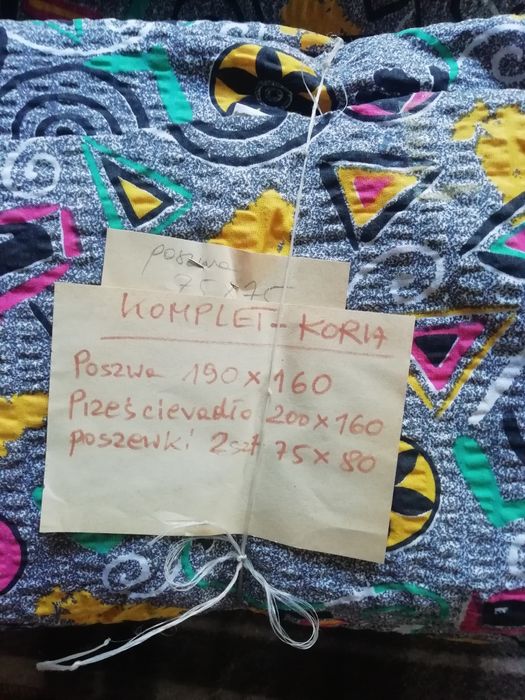 poszwa
75x75
KOMPLET - KORA
Poszwa 190 x 160
Prześcieradło 200 x 160
poszewki 2szt 75 x 80